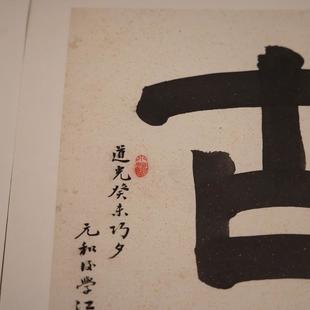 古
道光癸未巧夕
元和後學江